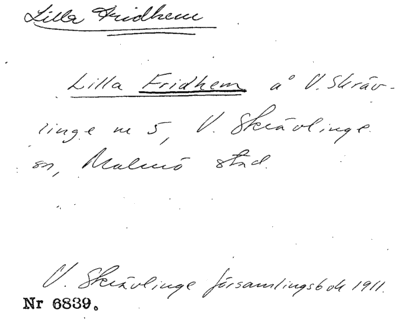 Lilla Fridhem
Lilla Fridhem å V. Skräv-
linge nr 5, V. Skrävlinge
sn, Malmö stad.
V. Skrävlinge församlingsbok 1911.
Nr 6839.